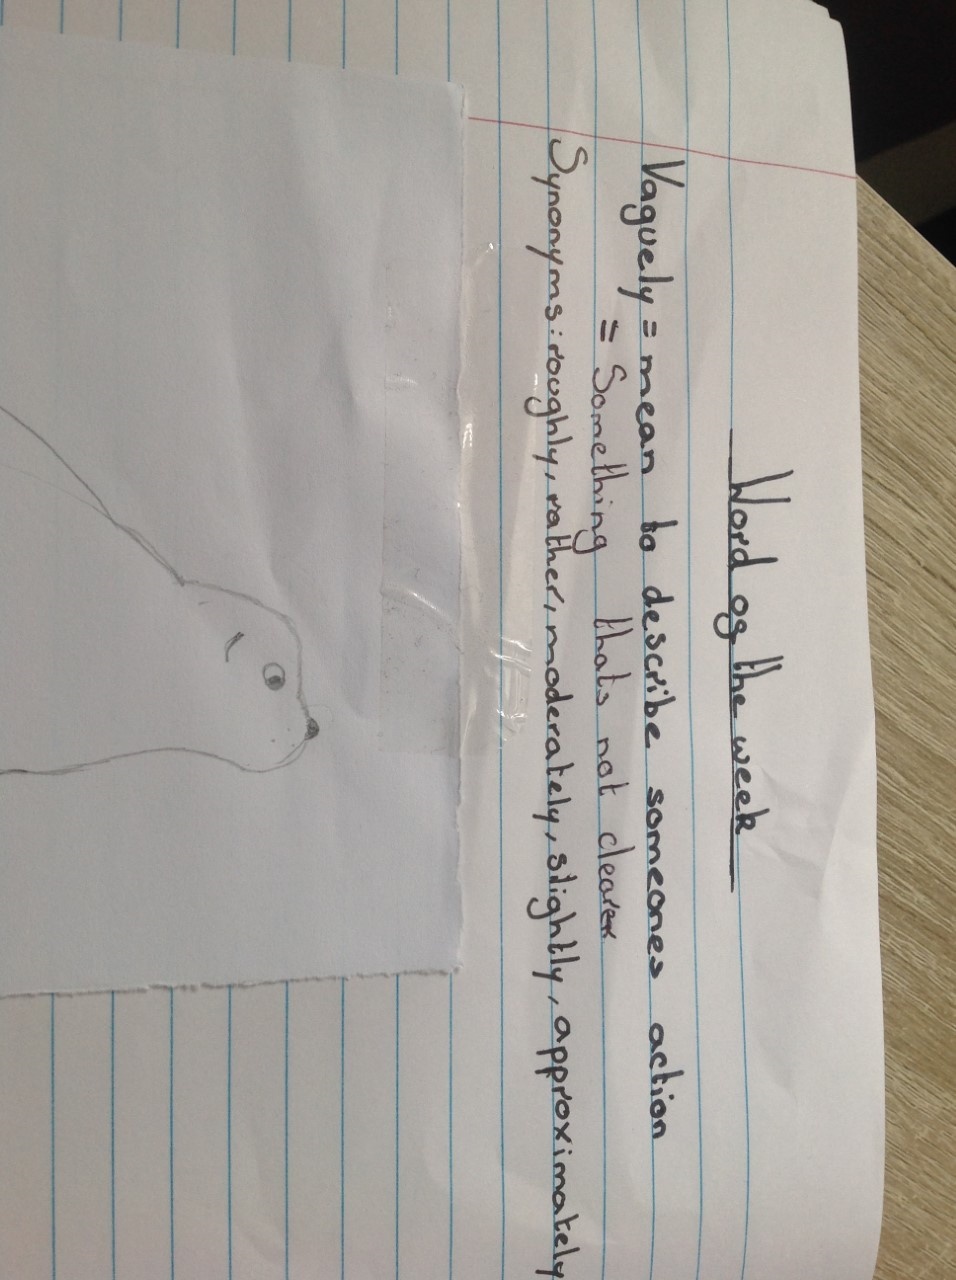 Word og the week
Vaguely = mean to describe someones action
= Something thats not clearer
Synonyms: roughly, rather, moderately, slightly, approximately